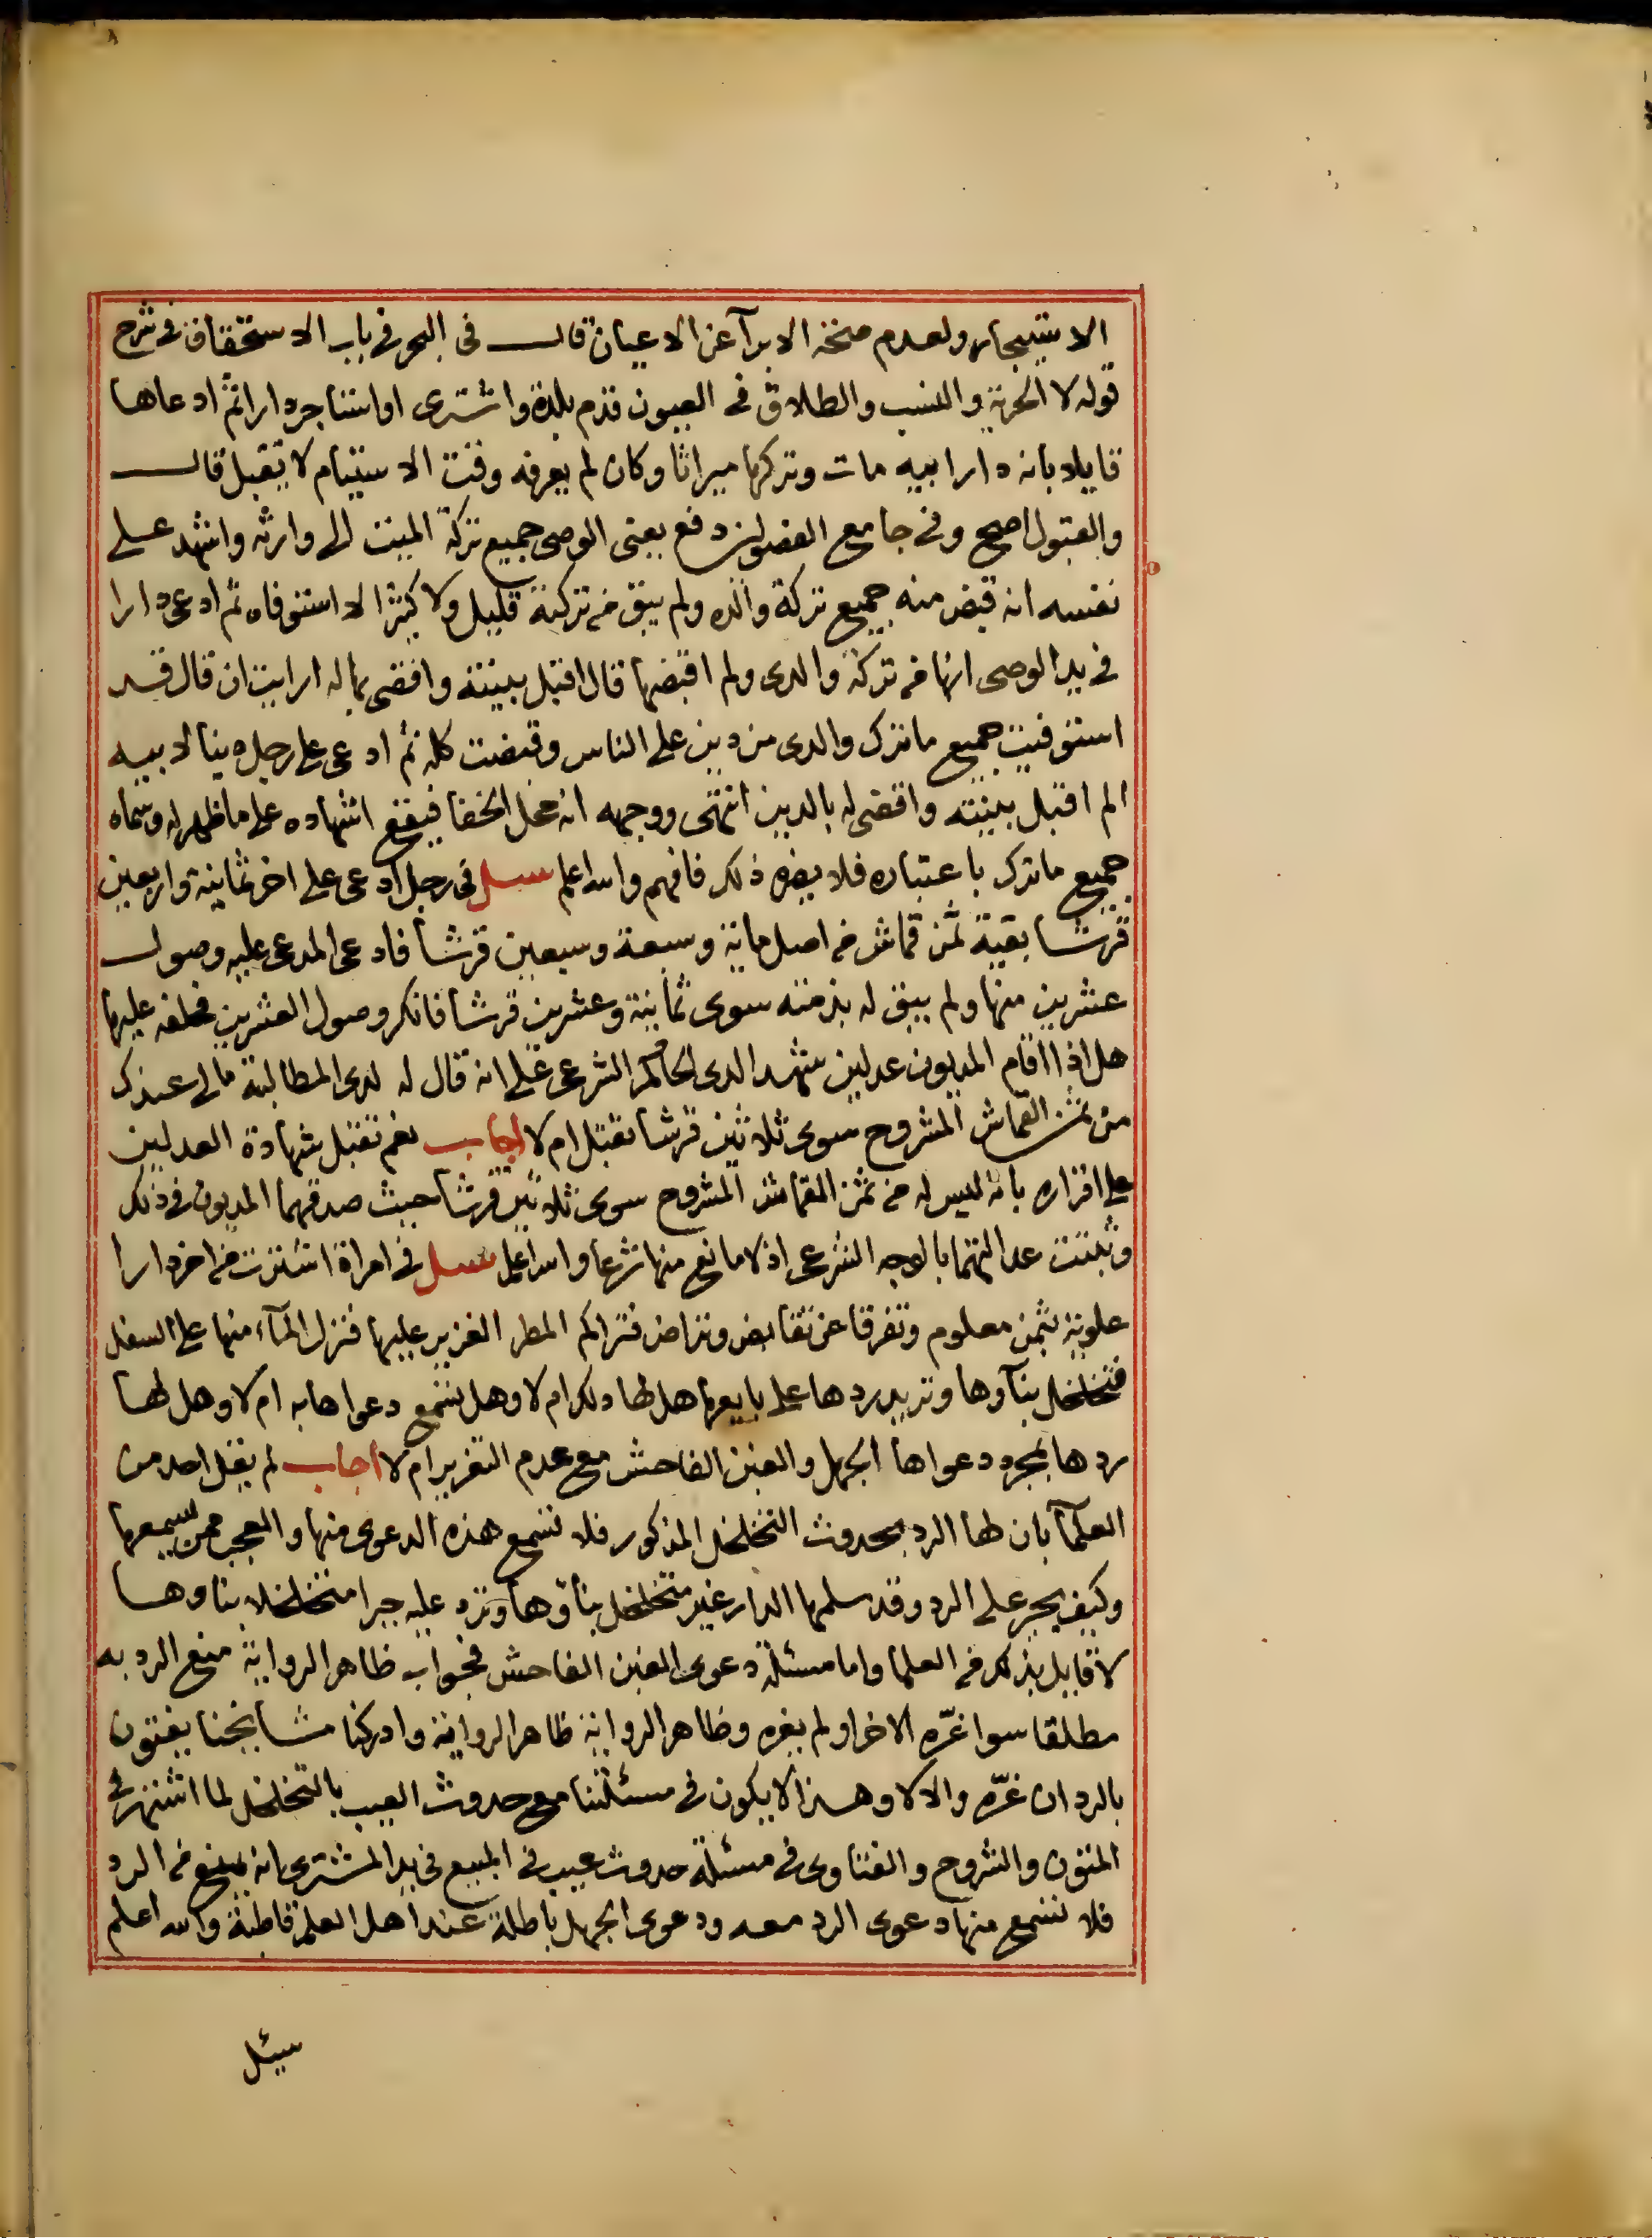 الاستيجار ولعدم صحة الابرآ عن الاعيان قال في البحر في باب الاستحقاق في شرح
قوله لا الحرية والنسب والطلاق في العيون قدم بلدة واشترى او استاجر دارا ثم ادعاها
قايلا بانه دار ابيه مات وتركها ميراثا وكان لم يعرفه وقت الاستيام لا تقبل قال
والقبول اصح وفي جامع الفصولين دفع يعني الوصي جميع تركة الميت الى وارثه واشهد على
نفسه انه قبض منه جميع تركة والده ولم يبق من تركته قليل ولا كثير الا استوفاه ثم ادعى دارا
في يد الوصي انها من تركة والدي ولم اقبضها قال اقبل بينته واقضي بها له ارايت ان قال قد
استوفيت جميع ما ترك والدي من دين على الناس وقبضت كله ثم ادعى على رجل دينا لابيه
الم اقبل بينته واقضي له بالدين انتهى ووجهه انه محل الخفا فيقع اشهاده على ما ظهر له وسماه
جميع ما ترك باعتباره فلا يضره ذلك فافهم والله اعلم سئل في رجل ادعى على اخر ثمانية واربعين
قرشا بقية ثمن قماش من اصل ماية وسبعة وسبعين قرشا فادعى المدعى عليه وصول
عشرين منها ولم يبق له بذمته سوى ثمانية وعشرين قرشا فانكر وصول العشرين فحلفه عليها
هل اذا اقام المديون عدلين شهدا لدى الحاكم الشرعي على انه قال له لدى المطالبة مالي عندك
من ثمن القماش المشروح سوى ثلاثين قرشا تقبل ام لا اجاب نعم تقبل شهادة العدلين
على اقراره بانه ليس له من ثمن القماش المشروح سوى ثلاثين قرشا حيث صدقهما المديون في ذلك
وثبتت عدالتهما بالوجه الشرعي اذ لا مانع منها شرعا والله اعلم سئل في امراة اشترت من اخر دارا
علوية بثمن معلوم وتفرقا عن تقابض وتراض فتراكم المطر الغزير عليها فنزل المآء منها على السفل
فتخلخل بنآوها وتريد ردها على بايعها هل لها ذلك ام لا وهل تسمع دعواها به ام لا وهل لها
ردها بمجرد دعواها الجهل والغبن الفاحش مع عدم التغرير ام لا اجاب لم يقل احد من
العلمآ بان لها الرد بحدوث التخلخل المذكور فلا تسمع هذه الدعوى منها والعجب ممن يسمعها
وكيف يجبر على الرد وقد سلمها الدار غير متخلخل بنآوها وترد عليه جبرا متخلخلا بناوها
لا قايل بذلك من العلما واما مسئلة دعوى الغبن الفاحش فجواب ظاهر الرواية منع الرد به
مطلقا سوا غرّه الاخر او لم يغره وظاهر الرواية ظاهر الرواية وادركنا مشايخنا يفتون
بالرد ان غرّه والا لا وهذا لا يكون في مسئلتنا مع حدوث العيب بالتخلخل لما اشتهر في
المتون والشروح والفتاوى في مسئلة حدوث عيب في المبيع في يد المشتري انه يمنع من الرد
فلا تسمع منها دعوى الرد معه ودعوى الجهل باطلة عند اهل العلم قاطبة والله اعلم
سئل